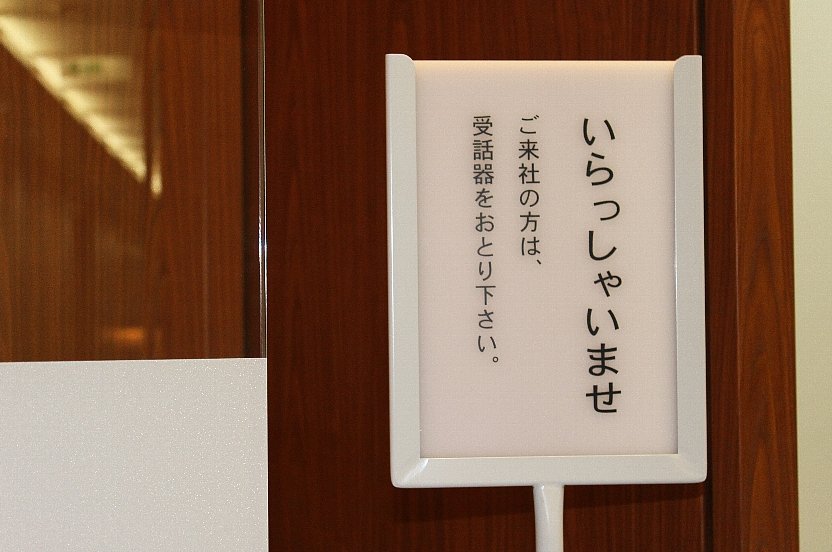 いらっしゃいませ
ご来社の方は、
受話器をおとり下さい。